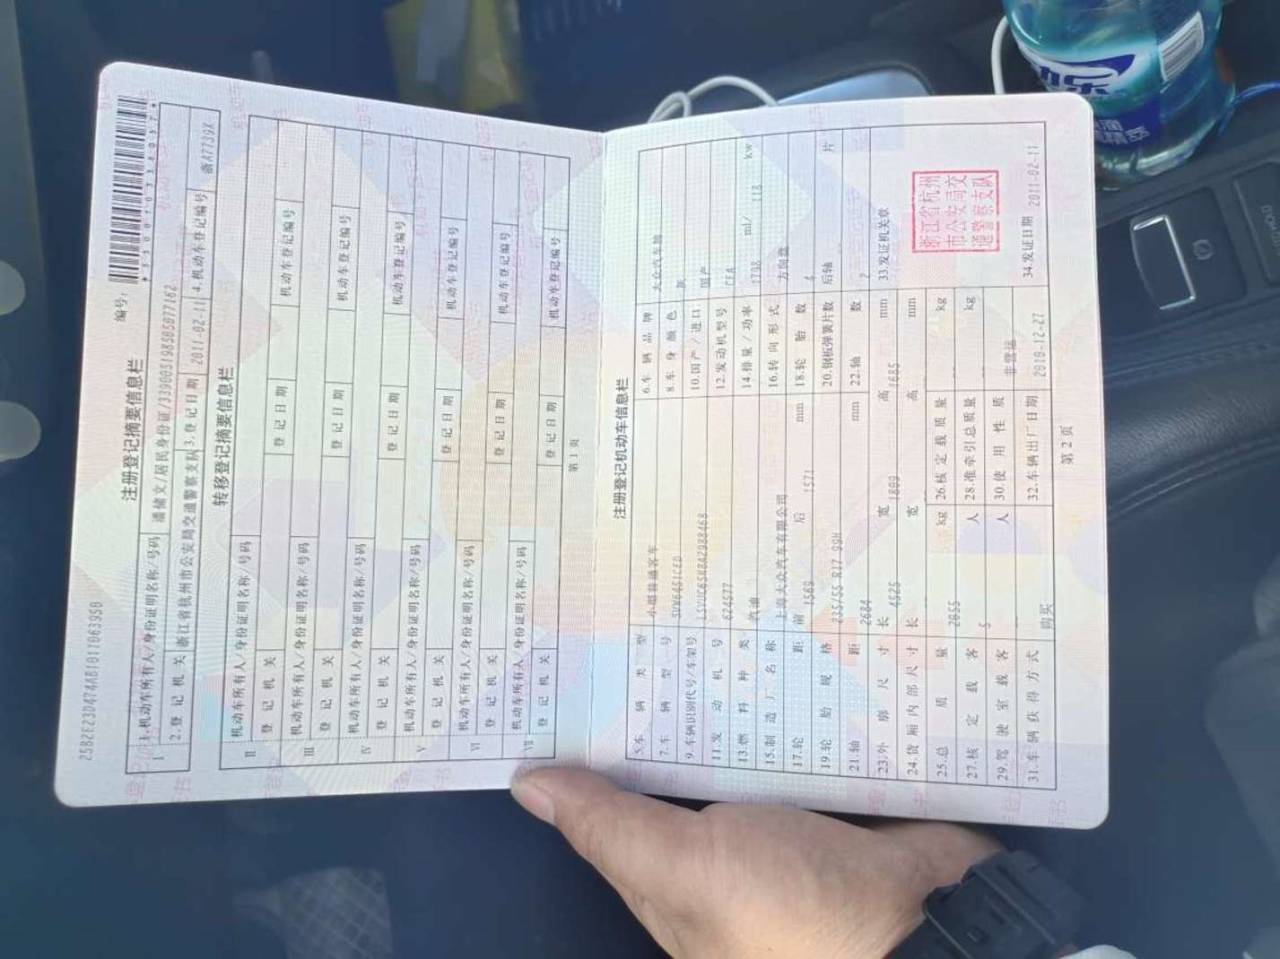 25B2E23D474AB1011T0639SB
注册登记摘要信息栏
编号:
I
1.机动车所有人/身份证明名称/号码 潘储文/居民身份证/339005198505077162
2.登记机关 浙江省杭州市公安局交通警察支队 3.登记日期 2011-02-11 4.机动车登记编号 浙A7739X
转移登记摘要信息栏
II
机动车所有人/身份证明名称/号码
登记机关 登记日期 机动车登记编号
III
机动车所有人/身份证明名称/号码
登记机关 登记日期 机动车登记编号
IV
机动车所有人/身份证明名称/号码
登记机关 登记日期 机动车登记编号
V
机动车所有人/身份证明名称/号码
登记机关 登记日期 机动车登记编号
VI
机动车所有人/身份证明名称/号码
登记机关 登记日期 机动车登记编号
VII
机动车所有人/身份证明名称/号码
登记机关 登记日期 机动车登记编号
第1页
注册登记机动车信息栏
5.车辆类型 小型普通客车 6.车辆品牌 大众汽车牌
7.车辆型号 8.车身颜色 灰
9.车辆识别代号/车架号 10.国产/进口 国产
11.发动机号 624577 12.发动机型号 CEA
13.燃料种类 汽油 14.排量/功率 1798 ml/ 118 kw
15.制造厂名称 上海大众汽车有限公司 16.转向形式 方向盘
17.轮距 前 1569 后 1571 mm 18.轮胎数 4
19.轮胎规格 235/55 R17 99H 20.钢板弹簧片数 后轴 片
21.轴距 2684 mm 22.轴数 2
23.外廓尺寸 长 4525 宽 1809 高 1685 mm 33.发证机关章
24.货厢内部尺寸 长 宽 高 mm
25.总质量 2055 kg 26.核定载质量 kg
27.核定载客 5 人 28.准牵引总质量 kg
29.驾驶室载客 人 30.使用性质 非营运
31.车辆获得方式 购买 32.车辆出厂日期 2010-12-27 34.发证日期 2011-02-11
浙江省杭州
市公安局交
通警察支队
第2页